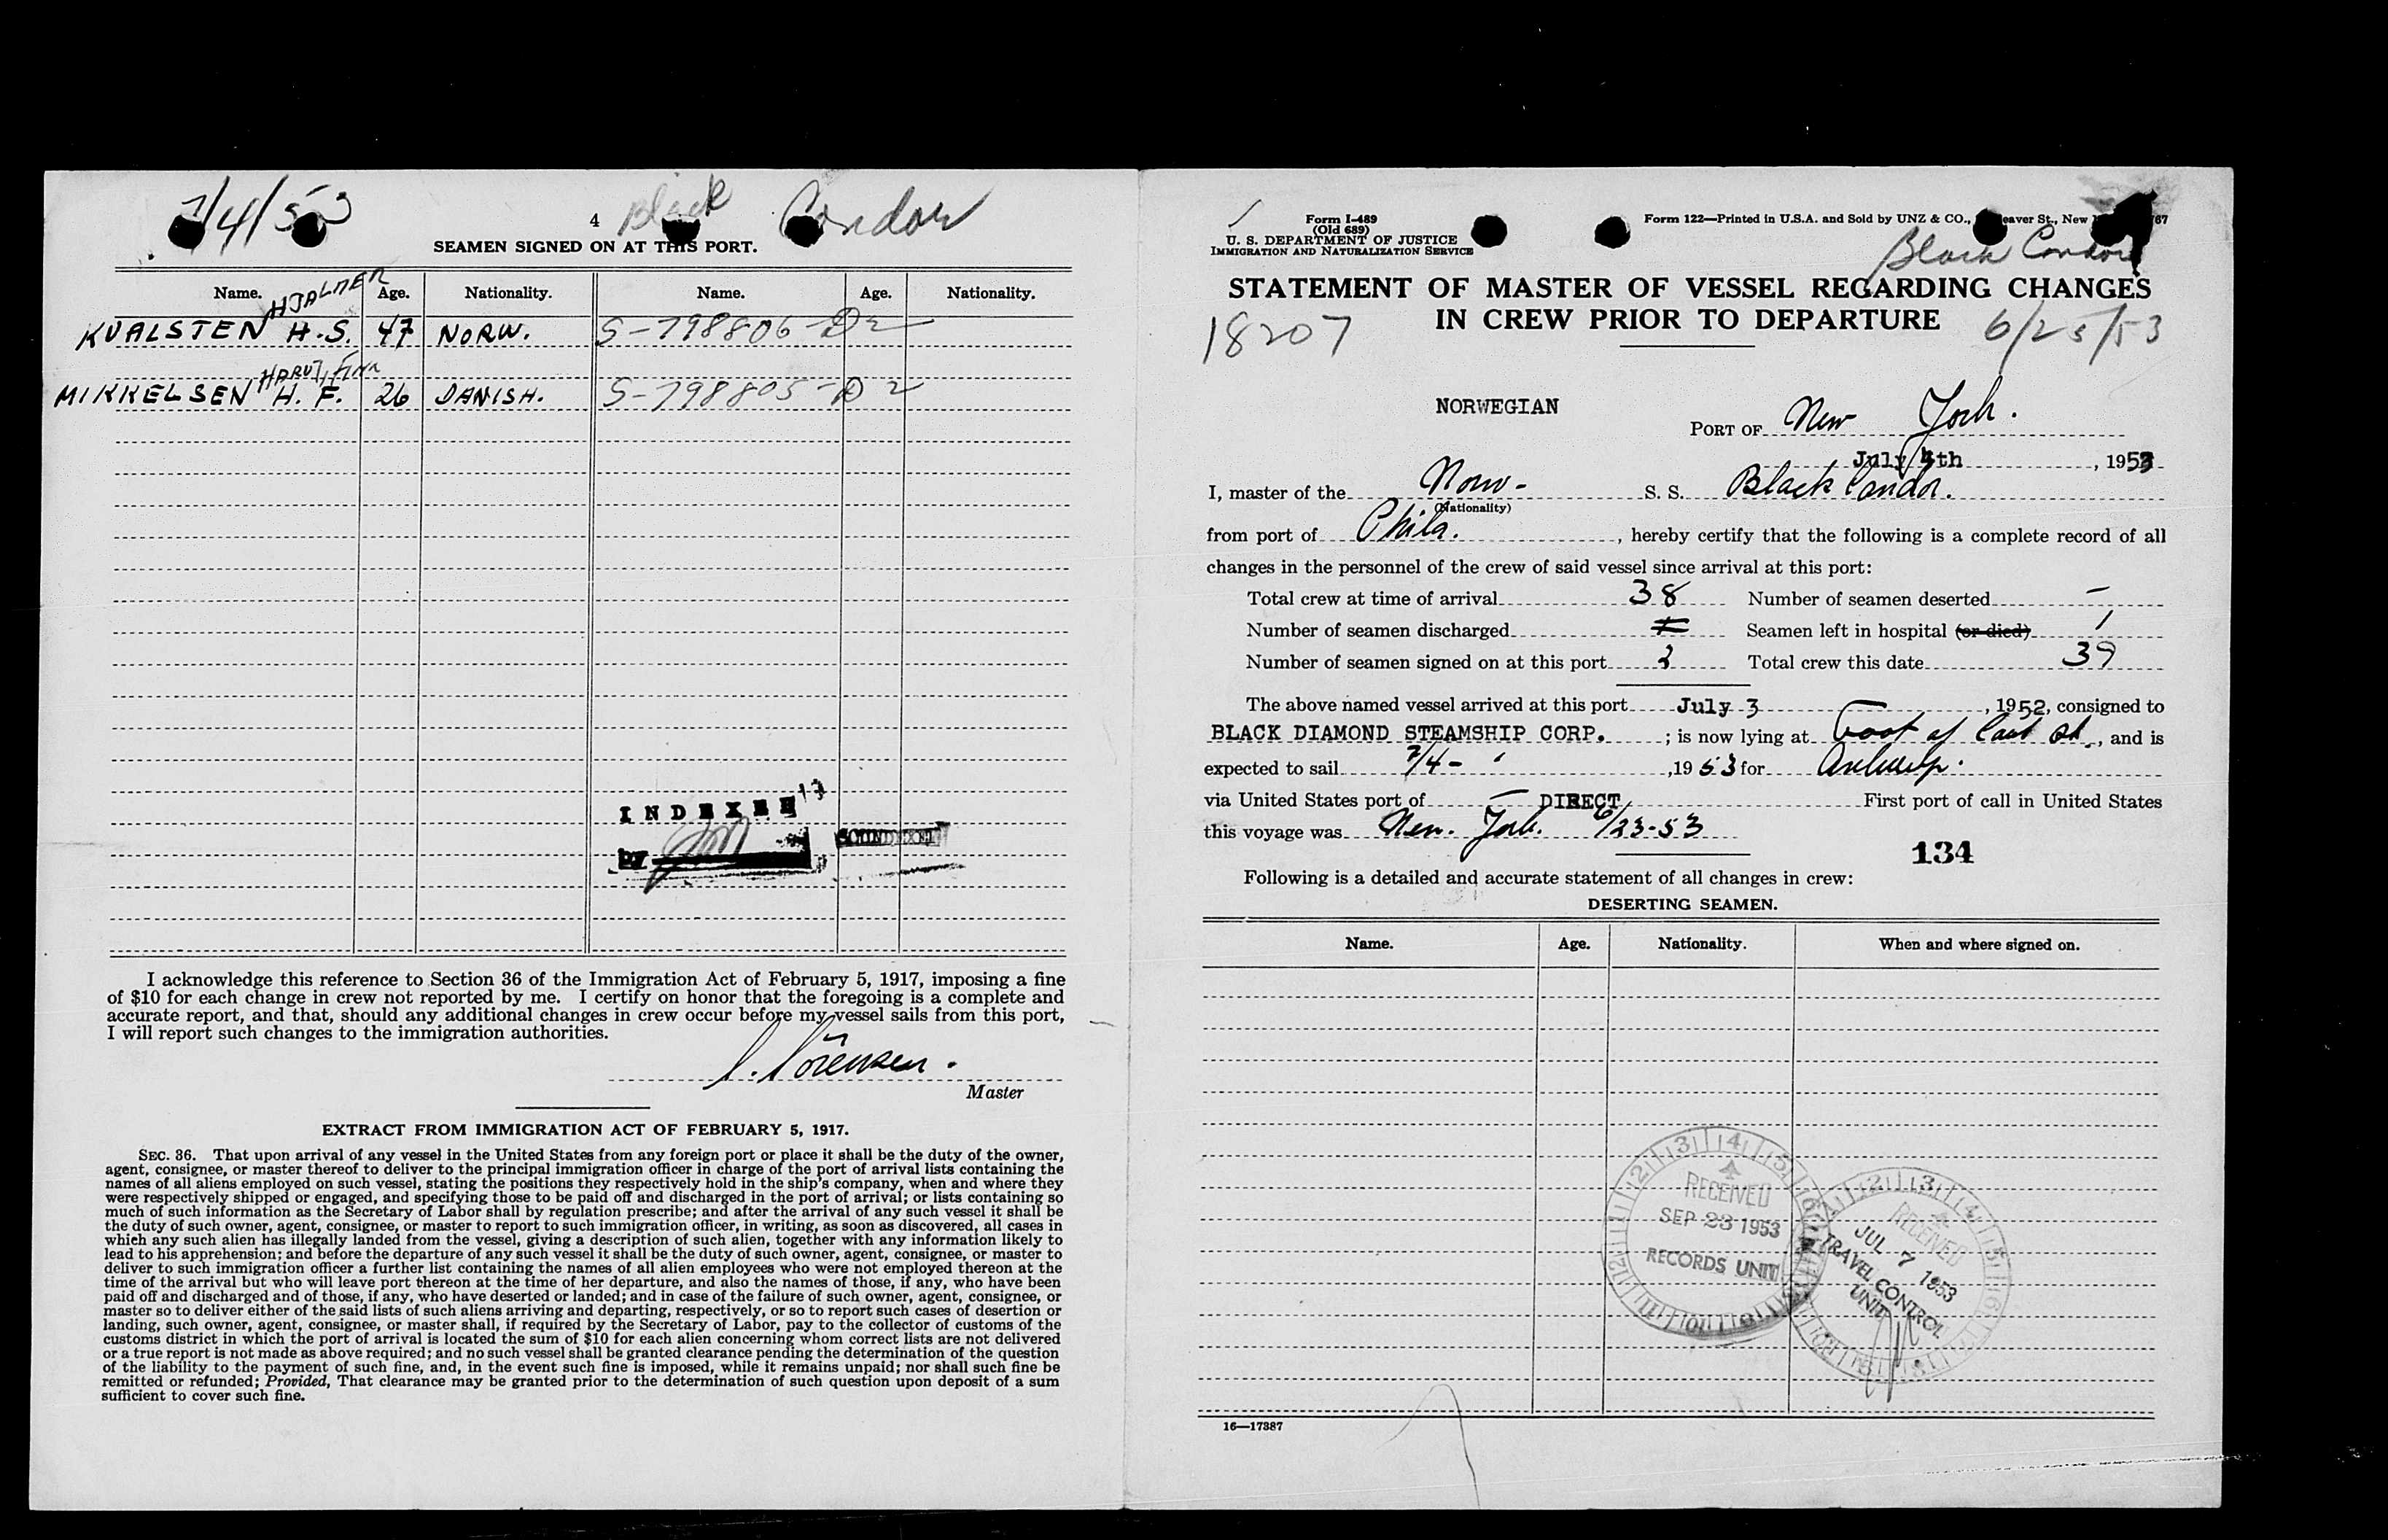 7/4/53
4 Black Condor
SEAMEN SIGNED ON AT THIS PORT.
Name. Age. Nationality. Name. Age. Nationality.
HJALMER
KVALSTEN H.S. 47 NORW. S-798806-D2
FINN
MIKKELSEN H. F. 26 DANISH. S-798805-D2
INDEXED
BY
I acknowledge this reference to Section 36 of the Immigration Act of February 5, 1917, imposing a fine
of $10 for each change in crew not reported by me. I certify on honor that the foregoing is a complete and
accurate report, and that, should any additional changes in crew occur before my vessel sails from this port,
I will report such changes to the immigration authorities.
Sörensen.
Master
EXTRACT FROM IMMIGRATION ACT OF FEBRUARY 5, 1917.
SEC. 36. That upon arrival of any vessel in the United States from any foreign port or place it shall be the duty of the owner,
agent, consignee, or master thereof to deliver to the principal immigration officer in charge of the port of arrival lists containing the
names of all aliens employed on such vessel, stating the positions they respectively hold in the ship's company, when and where they
were respectively shipped or engaged, and specifying those to be paid off and discharged in the port of arrival; or lists containing so
much of such information as the Secretary of Labor shall by regulation prescribe; and after the arrival of any such vessel it shall be
the duty of such owner, agent, consignee, or master to report to such immigration officer, in writing, as soon as discovered, all cases in
which any such alien has illegally landed from the vessel, giving a description of such alien, together with any information likely to
lead to his apprehension; and before the departure of any such vessel it shall be the duty of such owner, agent, consignee, or master to
deliver to such immigration officer a further list containing the names of all alien employees who were not employed thereon at the
time of the arrival but who will leave port thereon at the time of her departure, and also the names of those, if any, who have been
paid off and discharged and of those, if any, who have deserted or landed; and in case of the failure of such owner, agent, consignee, or
master so to deliver either of the said lists of such aliens arriving and departing, respectively, or so to report such cases of desertion or
landing, such owner, agent, consignee, or master shall, if required by the Secretary of Labor, pay to the collector of customs of the
customs district in which the port of arrival is located the sum of $10 for each alien concerning whom correct lists are not delivered
or a true report is not made as above required; and no such vessel shall be granted clearance pending the determination of the question
of the liability to the payment of such fine, and, in the event such fine is imposed, while it remains unpaid; nor shall such fine be
remitted or refunded; Provided, That clearance may be granted prior to the determination of such question upon deposit of a sum
sufficient to cover such fine.
Form I-489
(Old 689)
U. S. DEPARTMENT OF JUSTICE
IMMIGRATION AND NATURALIZATION SERVICE
Form 122—Printed in U.S.A. and Sold by UNZ & CO., eaver St., New 67
Black Condor
STATEMENT OF MASTER OF VESSEL REGARDING CHANGES
IN CREW PRIOR TO DEPARTURE
18207 6/25/53
NORWEGIAN
PORT OF New York.
July 4th, 1953
I, master of the Norw- S. S. Black Condor.
(Nationality)
from port of Phila., hereby certify that the following is a complete record of all
changes in the personnel of the crew of said vessel since arrival at this port:
Total crew at time of arrival 38 Number of seamen deserted —
Number of seamen discharged Seamen left in hospital (or died) 1
Number of seamen signed on at this port 2 Total crew this date 39
The above named vessel arrived at this port July 3, 1952, consigned to
BLACK DIAMOND STEAMSHIP CORP.; is now lying at Foot of, and is
expected to sail 7/4-, 1953 for Antwerp.
via United States port of — DIRECT First port of call in United States
this voyage was New York. 6/23-53
134
Following is a detailed and accurate statement of all changes in crew:
DESERTING SEAMEN.
Name. Age. Nationality. When and where signed on.
RECEIVED
SEP 23 1953
RECORDS UNIT
RECEIVED
JUL 7 1953
TRAVEL CONTROL
UNIT
16—17387